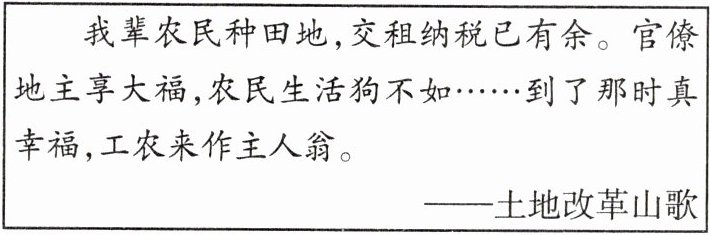 我辈农民种田地,交租纳税已有余。官僚
地主享大福,农民生活狗不如……到了那时真
幸福,工农来作主人翁。
——土地改革山歌